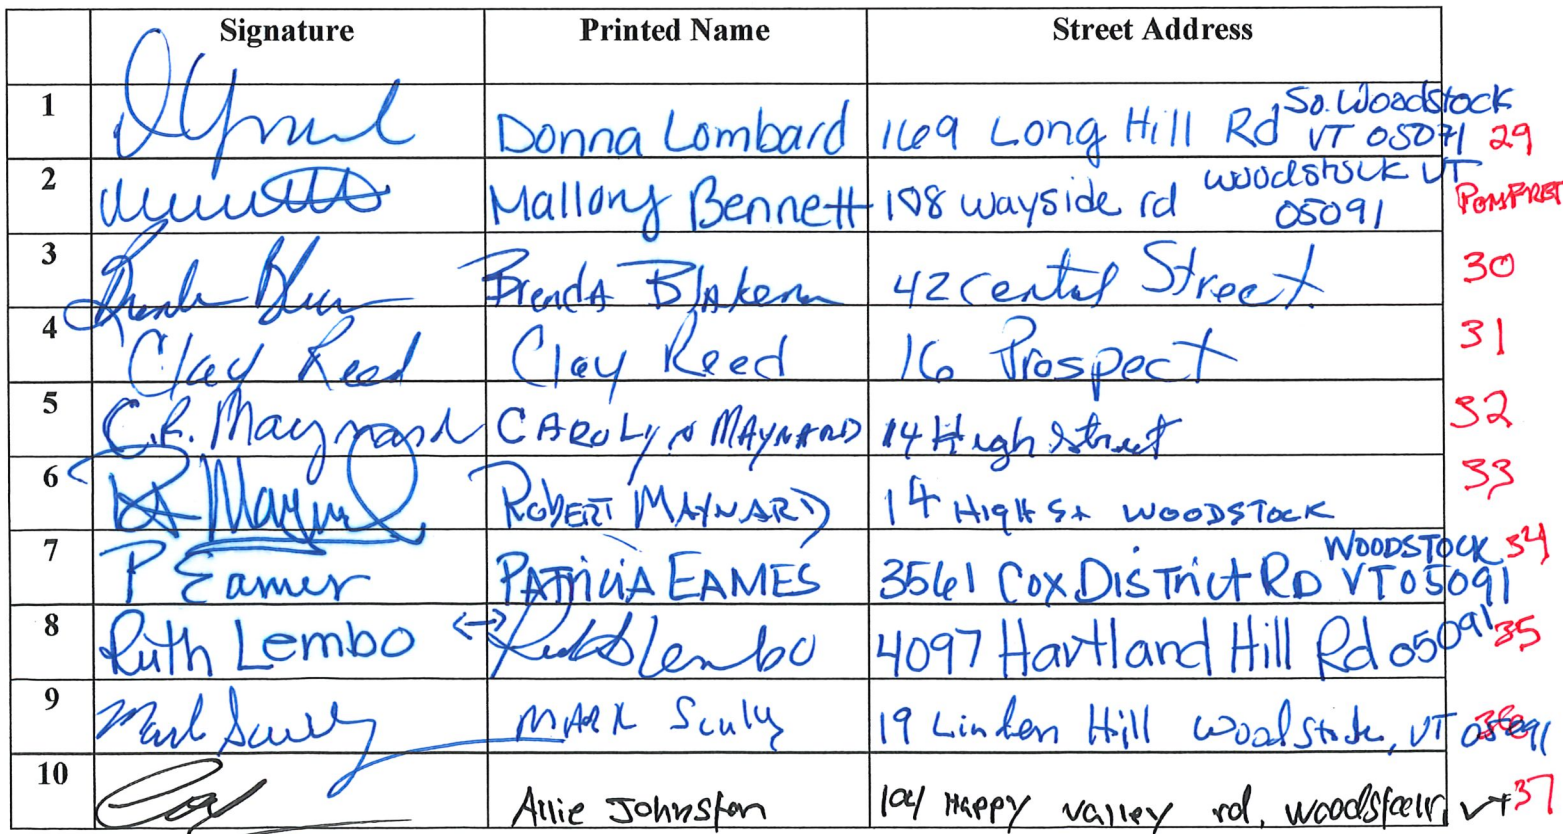 Signature Printed Name Street Address
1 Donna Lombard 169 Long Hill Rd So. Woodstock VT 05071 29
2 Mallory Bennett 108 wayside rd woodstock VT 05091 POMFRET
3 Brenda Blakeman 42 Central Street 30
4 Clay Reed Clay Reed 16 Prospect 31
5 C.R. Maynard CAROLYN MAYNARD 14 High Street 32
6 Maynard ROBERT MAYNARD 14 HIGH St WOODSTOCK 33
7 P Eames PATRICIA EAMES 3561 Cox District RD WOODSTOCK VT 05091 34
8 Ruth Lembo <-> Ruth Lembo 4097 Hartland Hill Rd 05091 35
9 Mark Scully MARK Sculy 19 Linden Hill Woodstock, VT 05091 36
10 Allie Johnston 104 Happy valley rd, woodstock, VT 37